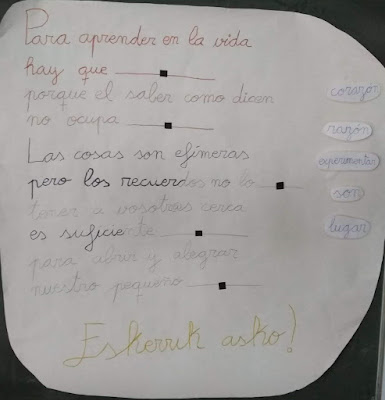 Para aprender en la vida
hay que
porque el saber como dicen
no ocupa
Las cosas son efímeras
pero los recuerdos no lo
tener a vosotros cerca
es suficiente
para abrir y alegrar
nuestro pequeño
corazón
razón
experimentar
son
lugar
Eskerrik asko!